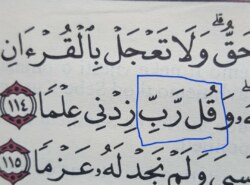 حَقُّ ۗ وَلَا تَعْجَلْ بِالْقُرْءَانِ
وَقُل رَّبِّ زِدْنِى عِلْمًا ١١٤
سِىَ وَلَمْ نَجِدْ لَهُۥ عَزْمًا ١١٥